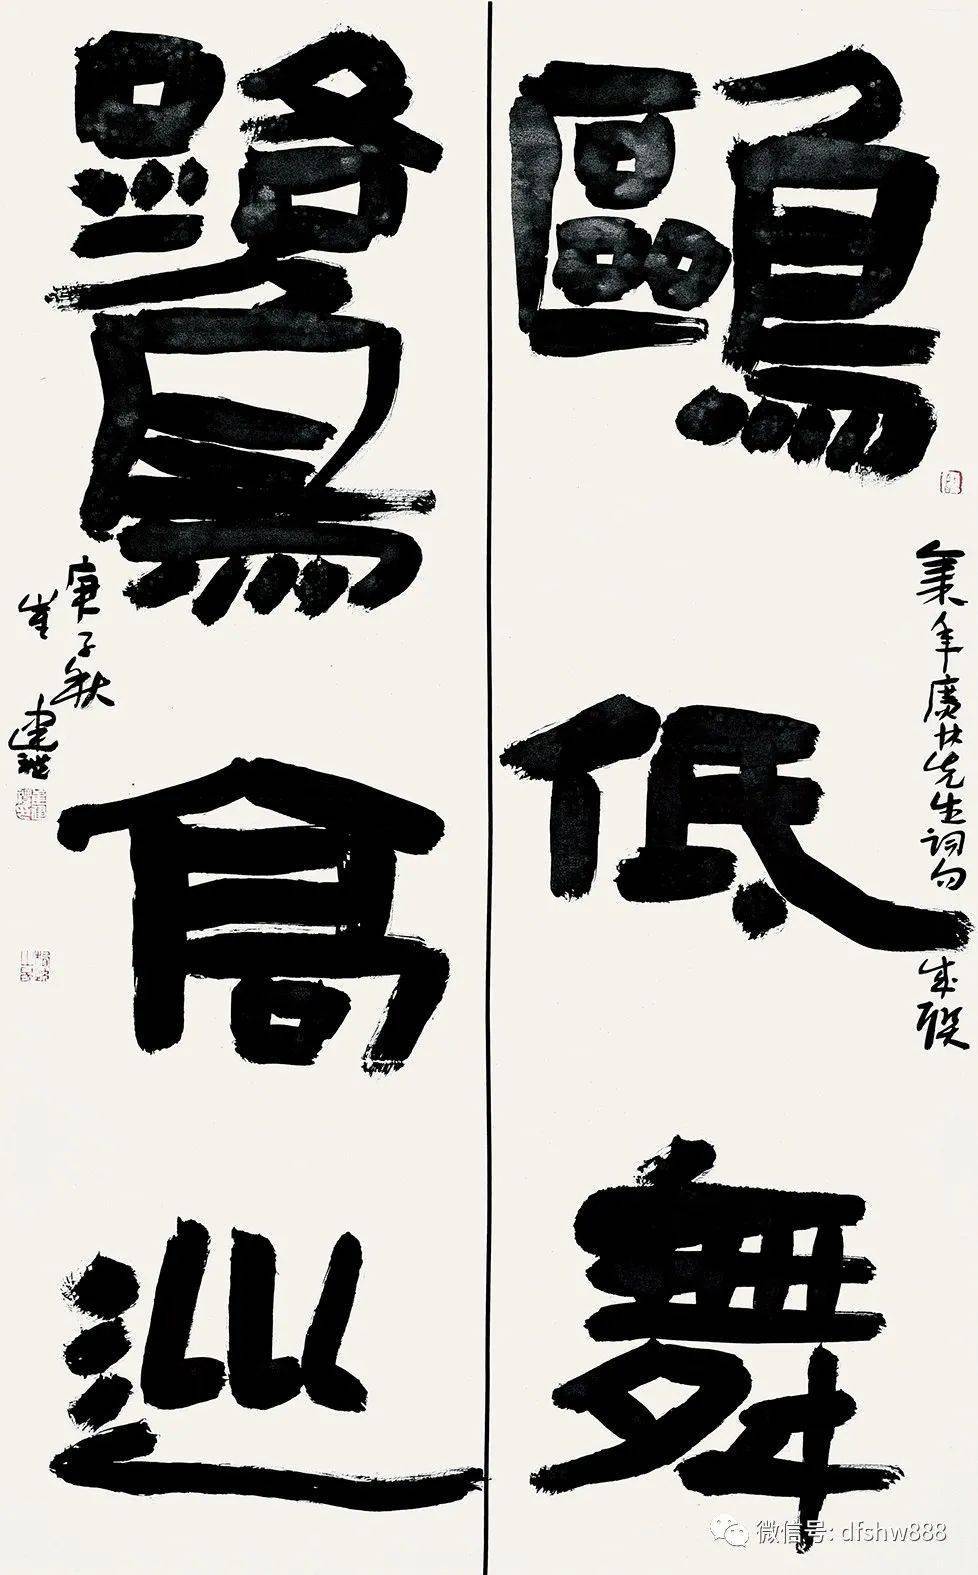 鷗低舞
集廣林先生詞句成聯
鷺高巡
庚子秋
崔建
微信号: dfshw888